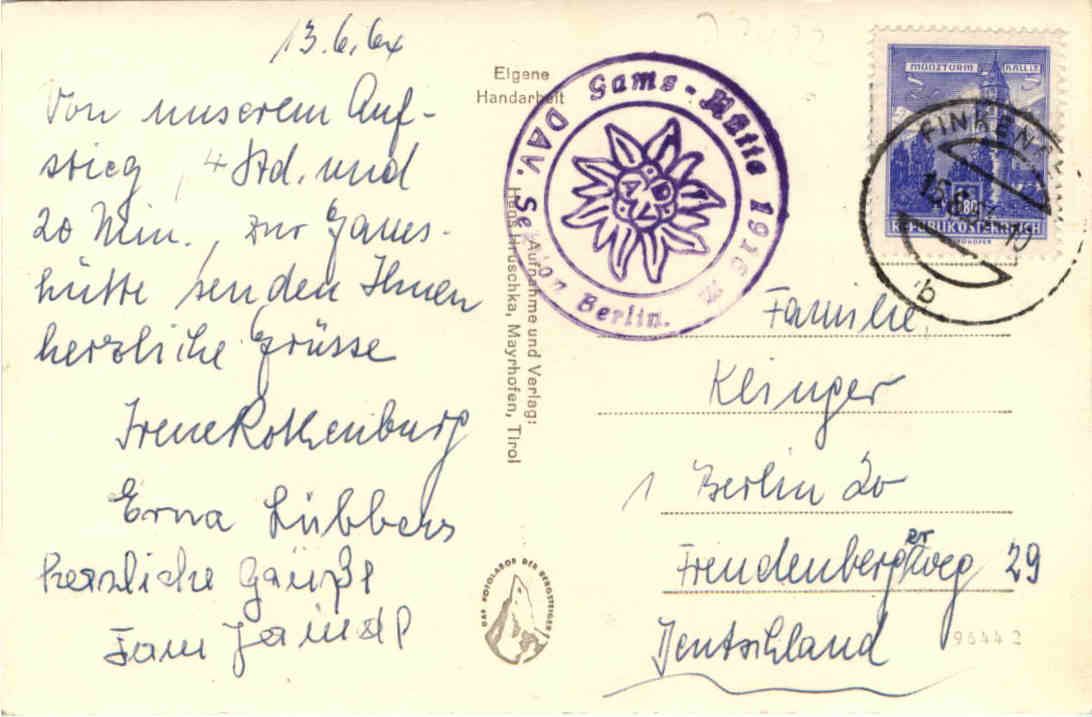 13.6.64
Von unserem Auf-
stieg, 4 Std. und
20 Min., zur Gams-
hütte senden Ihnen
herzliche Grüsse
Irene Rothenburg
Erna Lübbers
herzliche Grüße
Fam
Eigene
Handarbeit
Gams-Hütte 1916 m
DAV. Sektion Berlin.
DAV
Aufnahme und Verlag:
Hans Hruschka, Mayrhofen, Tirol
DAS FOTOLABOR DER BERGSTEIGER
MÜNZTURM HALL I. T.
REPUBLIK ÖSTERREICH
FINKENB
b
Familie
Klinger
1 Berlin 20
Freudenbergerweg 29
Deutschland
96442